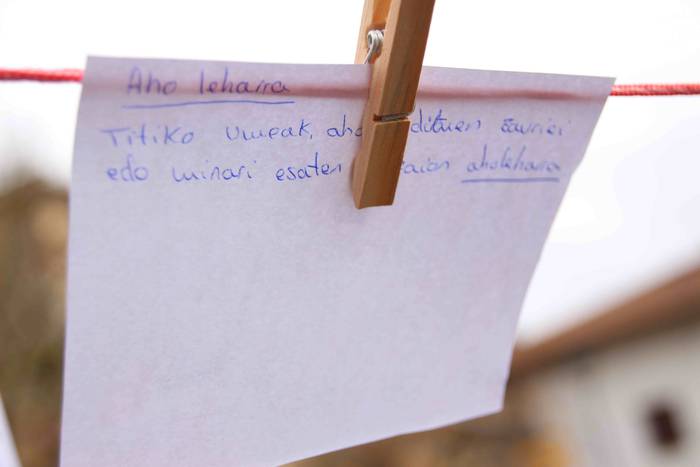 Aho leharra
Titiko Umeak, aho dituen zauriei
edo minari esaten aholeharra